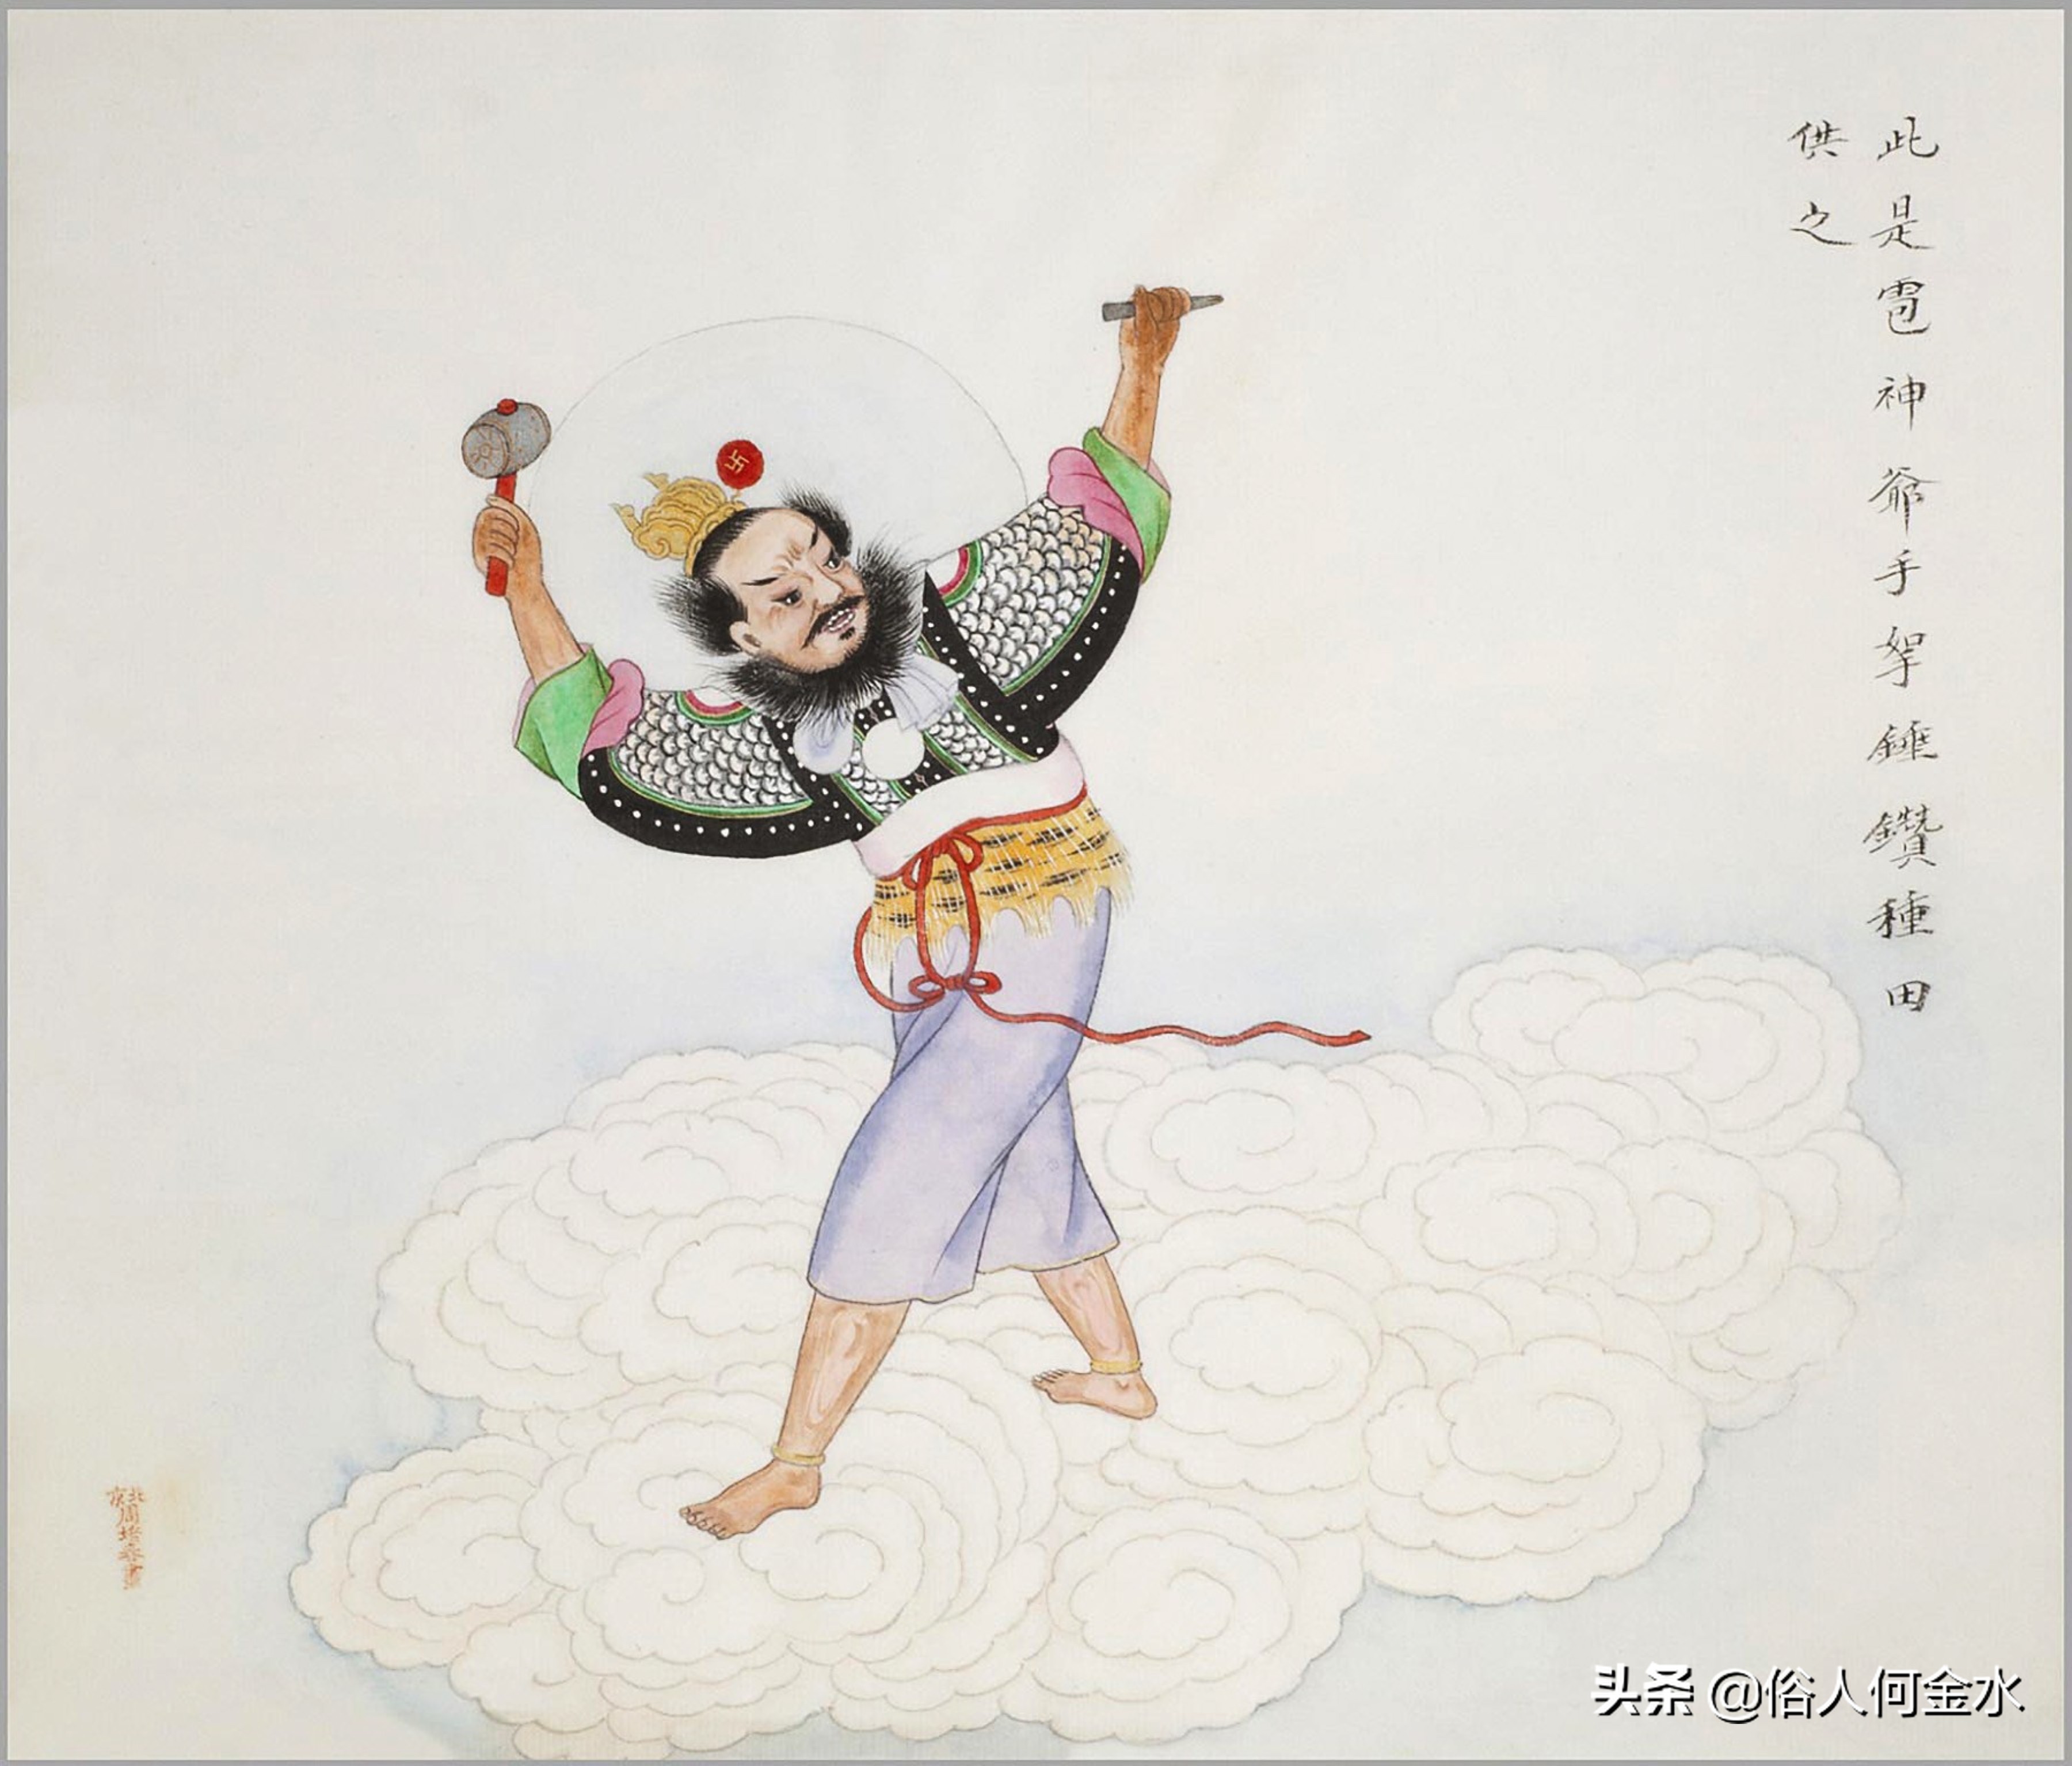 此是雹神爺手拏錘鑽種田
供之
北京周培春畫
头条 @俗人何金水